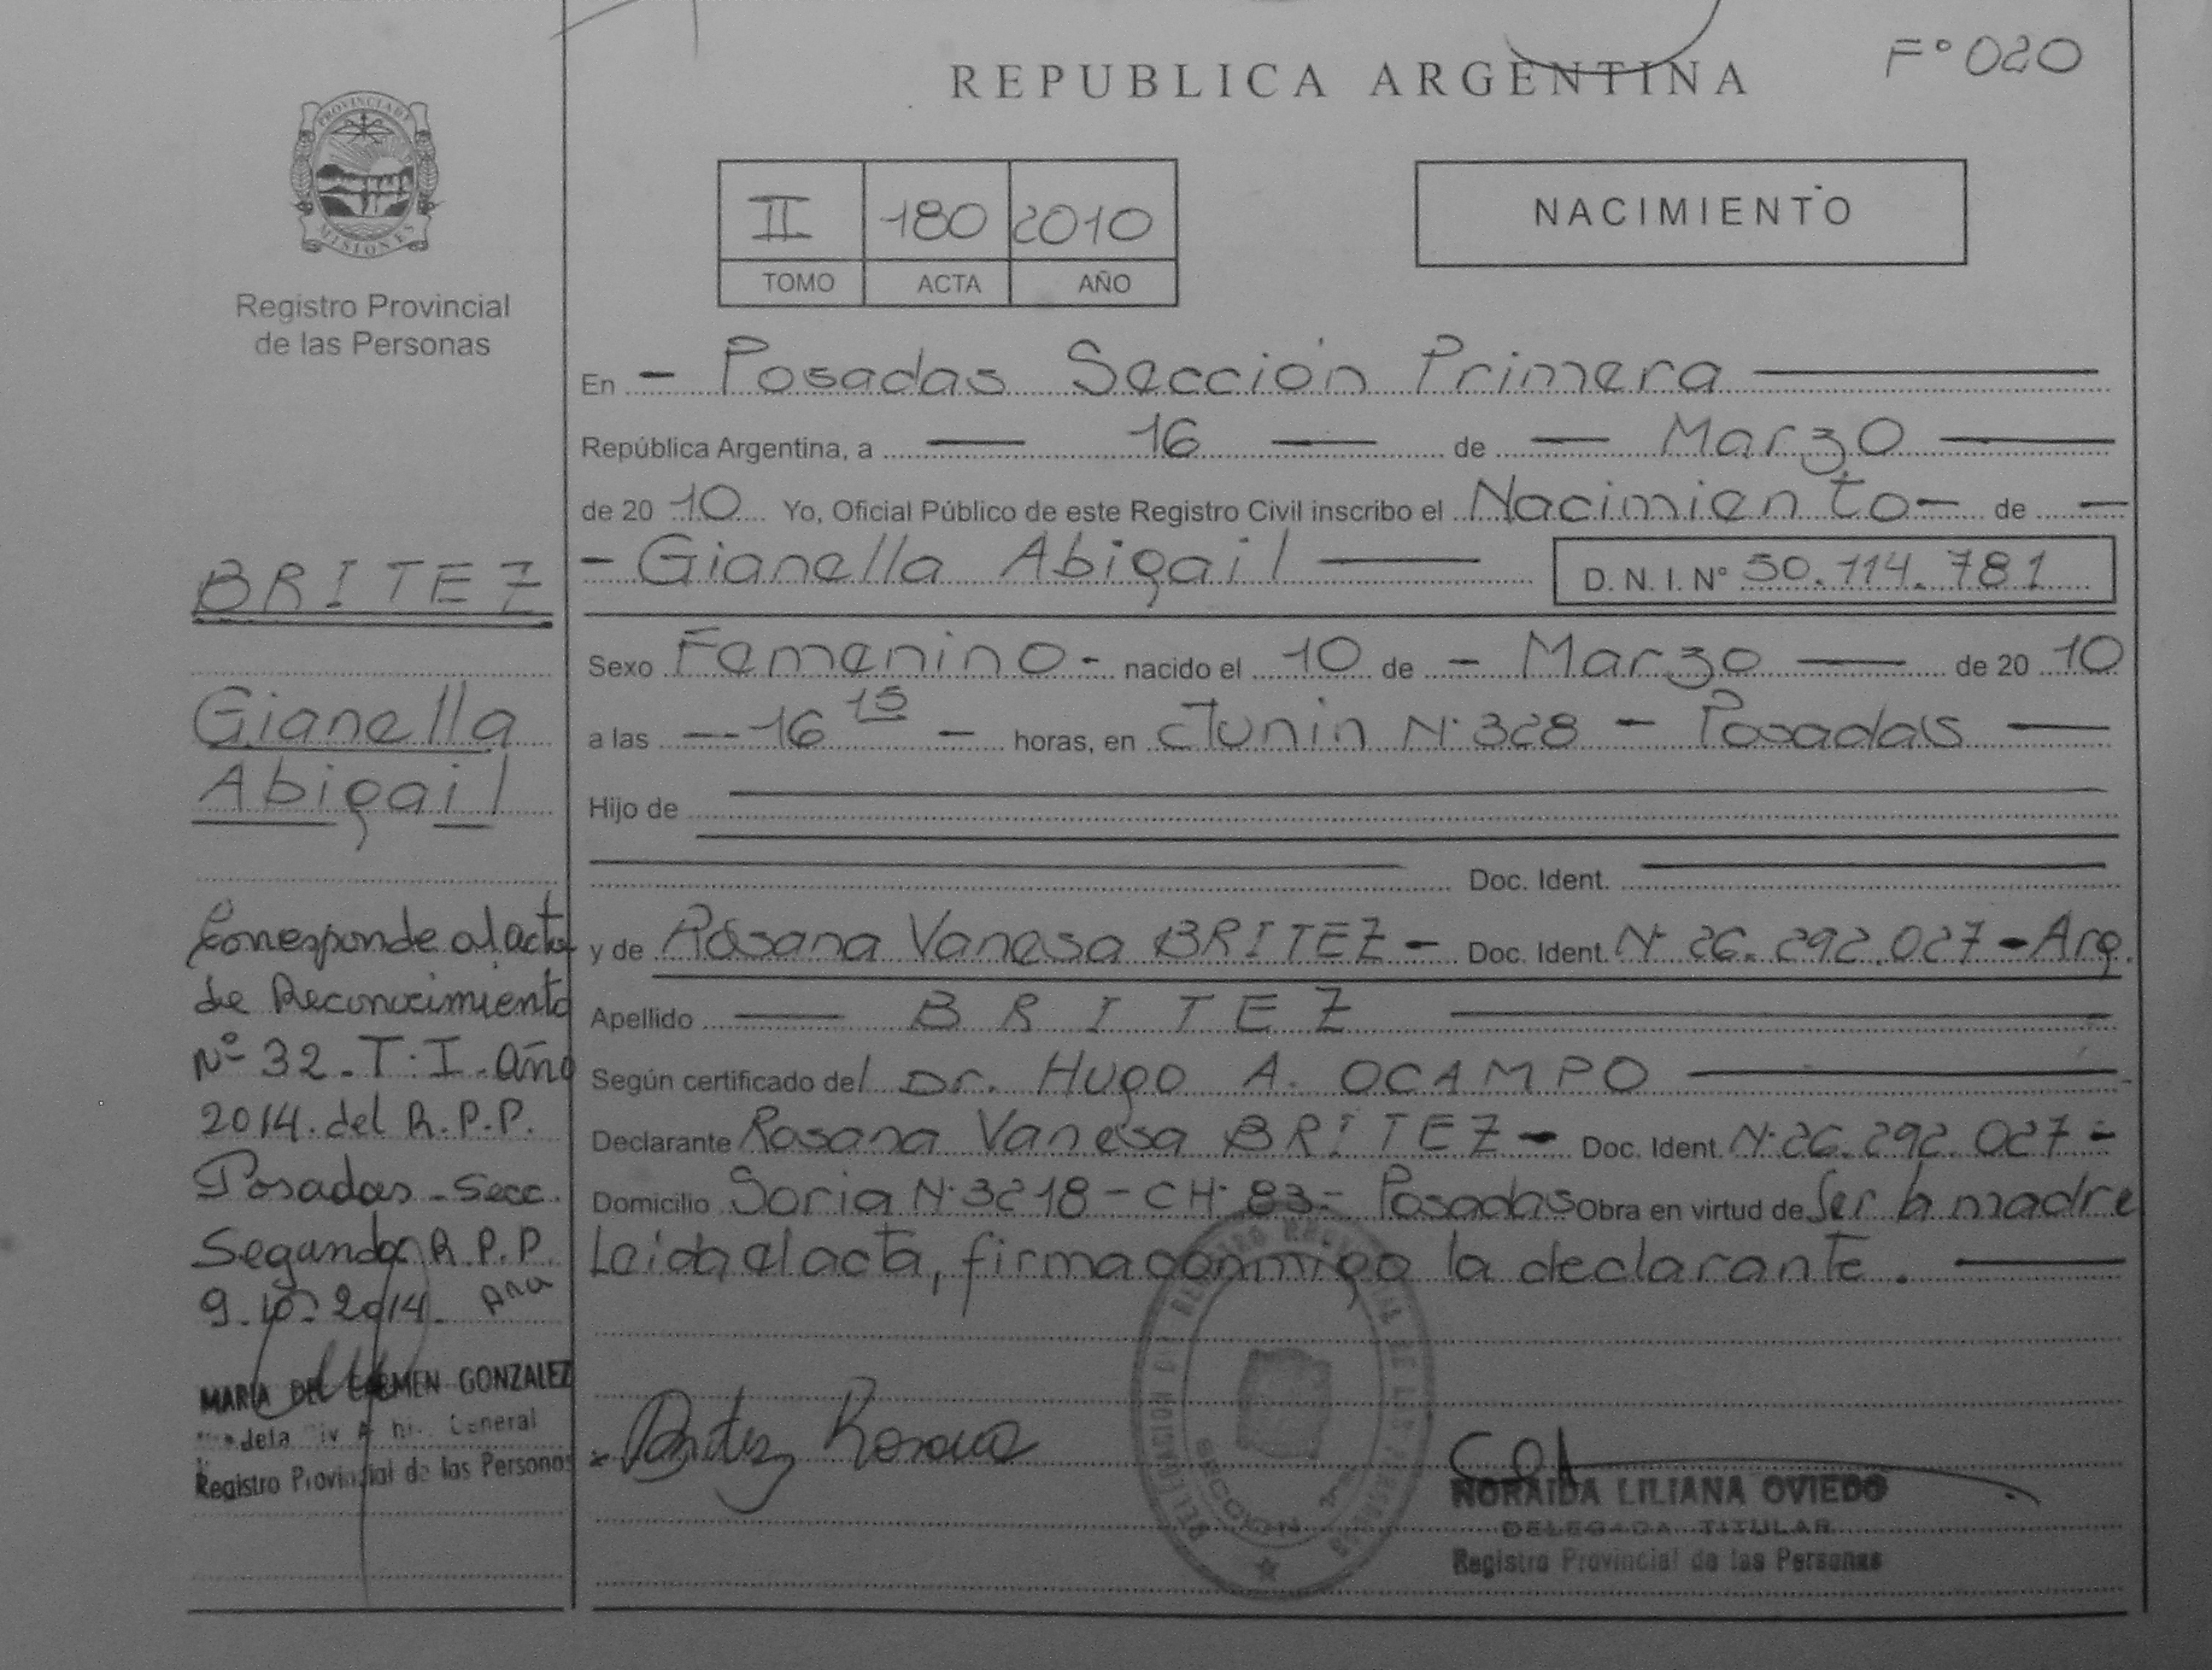 F° 020
REPUBLICA ARGENTINA
PROVINCIA DE
MISIONES
Registro Provincial
de las Personas
II 180 2010
TOMO ACTA AÑO
NACIMIENTO
En - Posadas Sección Primera
República Argentina, a 16 de Marzo
de 20 10 Yo, Oficial Público de este Registro Civil inscribo el Nacimiento - de
- Gianella Abigail D. N. I. N° 50.114.781
Sexo Femenino - nacido el 10 de - Marzo de 20 10
a las 16 15 - horas, en Junin N° 328 - Posadas
Hijo de
Doc. Ident.
y de Rosana Vanesa BRITEZ - Doc. Ident. N° 26.292.027 - Arg.
Apellido BRITEZ
Según certificado del Dr. Hugo A. OCAMPO
Declarante Rosana Vanesa BRITEZ - Doc. Ident. N° 26.292.027 -
Domicilio Soria N° 3218 - CH. 83 - Posadas Obra en virtud de Ser la madre
Leida el acta, firma conmigo la declarante.
BRITEZ
Gianella
Abigail
Corresponde al acta
de Reconocimiento
N° 32 - T. I. Año
2014 del R.P.P.
Posadas - Secc.
Segunda R.P.P.
9.10.2014. Ana
MARIA DEL CARMEN GONZALEZ
General
Registro Provincial de las Personas
Britez Rosana
NORAIDA LILIANA OVIEDO
DELEGADA TITULAR
Registro Provincial de las Personas